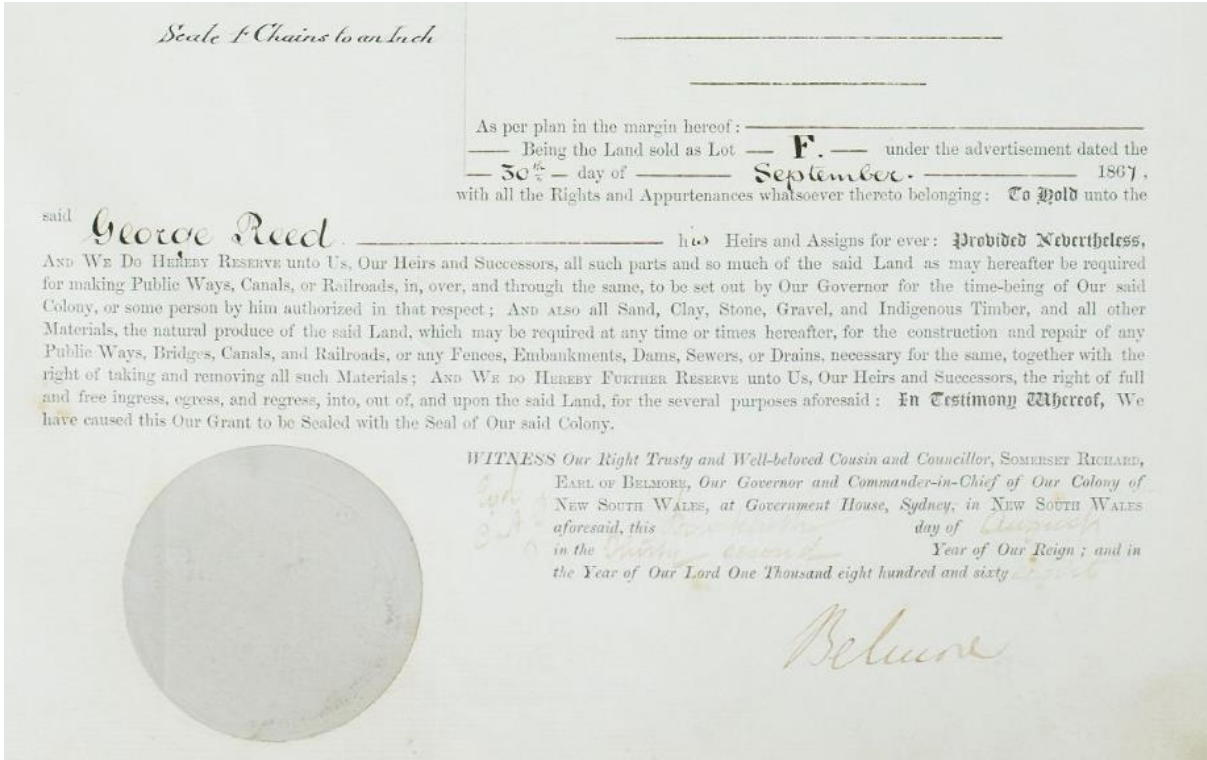 Scale 4 Chains to an Inch
As per plan in the margin hereof:
Being the Land sold as Lot F. under the advertisement dated the
30th day of September. 1867,
with all the Rights and Appurtenances whatsoever thereto belonging: To Hold unto the
said George Reed his Heirs and Assigns for ever: Provided Nevertheless,
AND WE DO HEREBY RESERVE unto Us, Our Heirs and Successors, all such parts and so much of the said Land as may hereafter be required
for making Public Ways, Canals, or Railroads, in, over, and through the same, to be set out by Our Governor for the time-being of Our said
Colony, or some person by him authorized in that respect; AND ALSO all Sand, Clay, Stone, Gravel, and Indigenous Timber, and all other
Materials, the natural produce of the said Land, which may be required at any time or times hereafter, for the construction and repair of any
Public Ways, Bridges, Canals, and Railroads, or any Fences, Embankments, Dams, Sewers, or Drains, necessary for the same, together with the
right of taking and removing all such Materials; AND WE DO HEREBY FURTHER RESERVE unto Us, Our Heirs and Successors, the right of full
and free ingress, egress, and regress, into, out of, and upon the said Land, for the several purposes aforesaid: In Testimony Whereof, We
have caused this Our Grant to be Sealed with the Seal of Our said Colony.
WITNESS Our Right Trusty and Well-beloved Cousin and Councillor, SOMERSET RICHARD,
EARL OF BELMORE, Our Governor and Commander-in-Chief of Our Colony of
NEW SOUTH WALES, at Government House, Sydney, in NEW SOUTH WALES
aforesaid, this day of August
in the thirty second Year of Our Reign; and in
the Year of Our Lord One Thousand eight hundred and sixty
Belmore